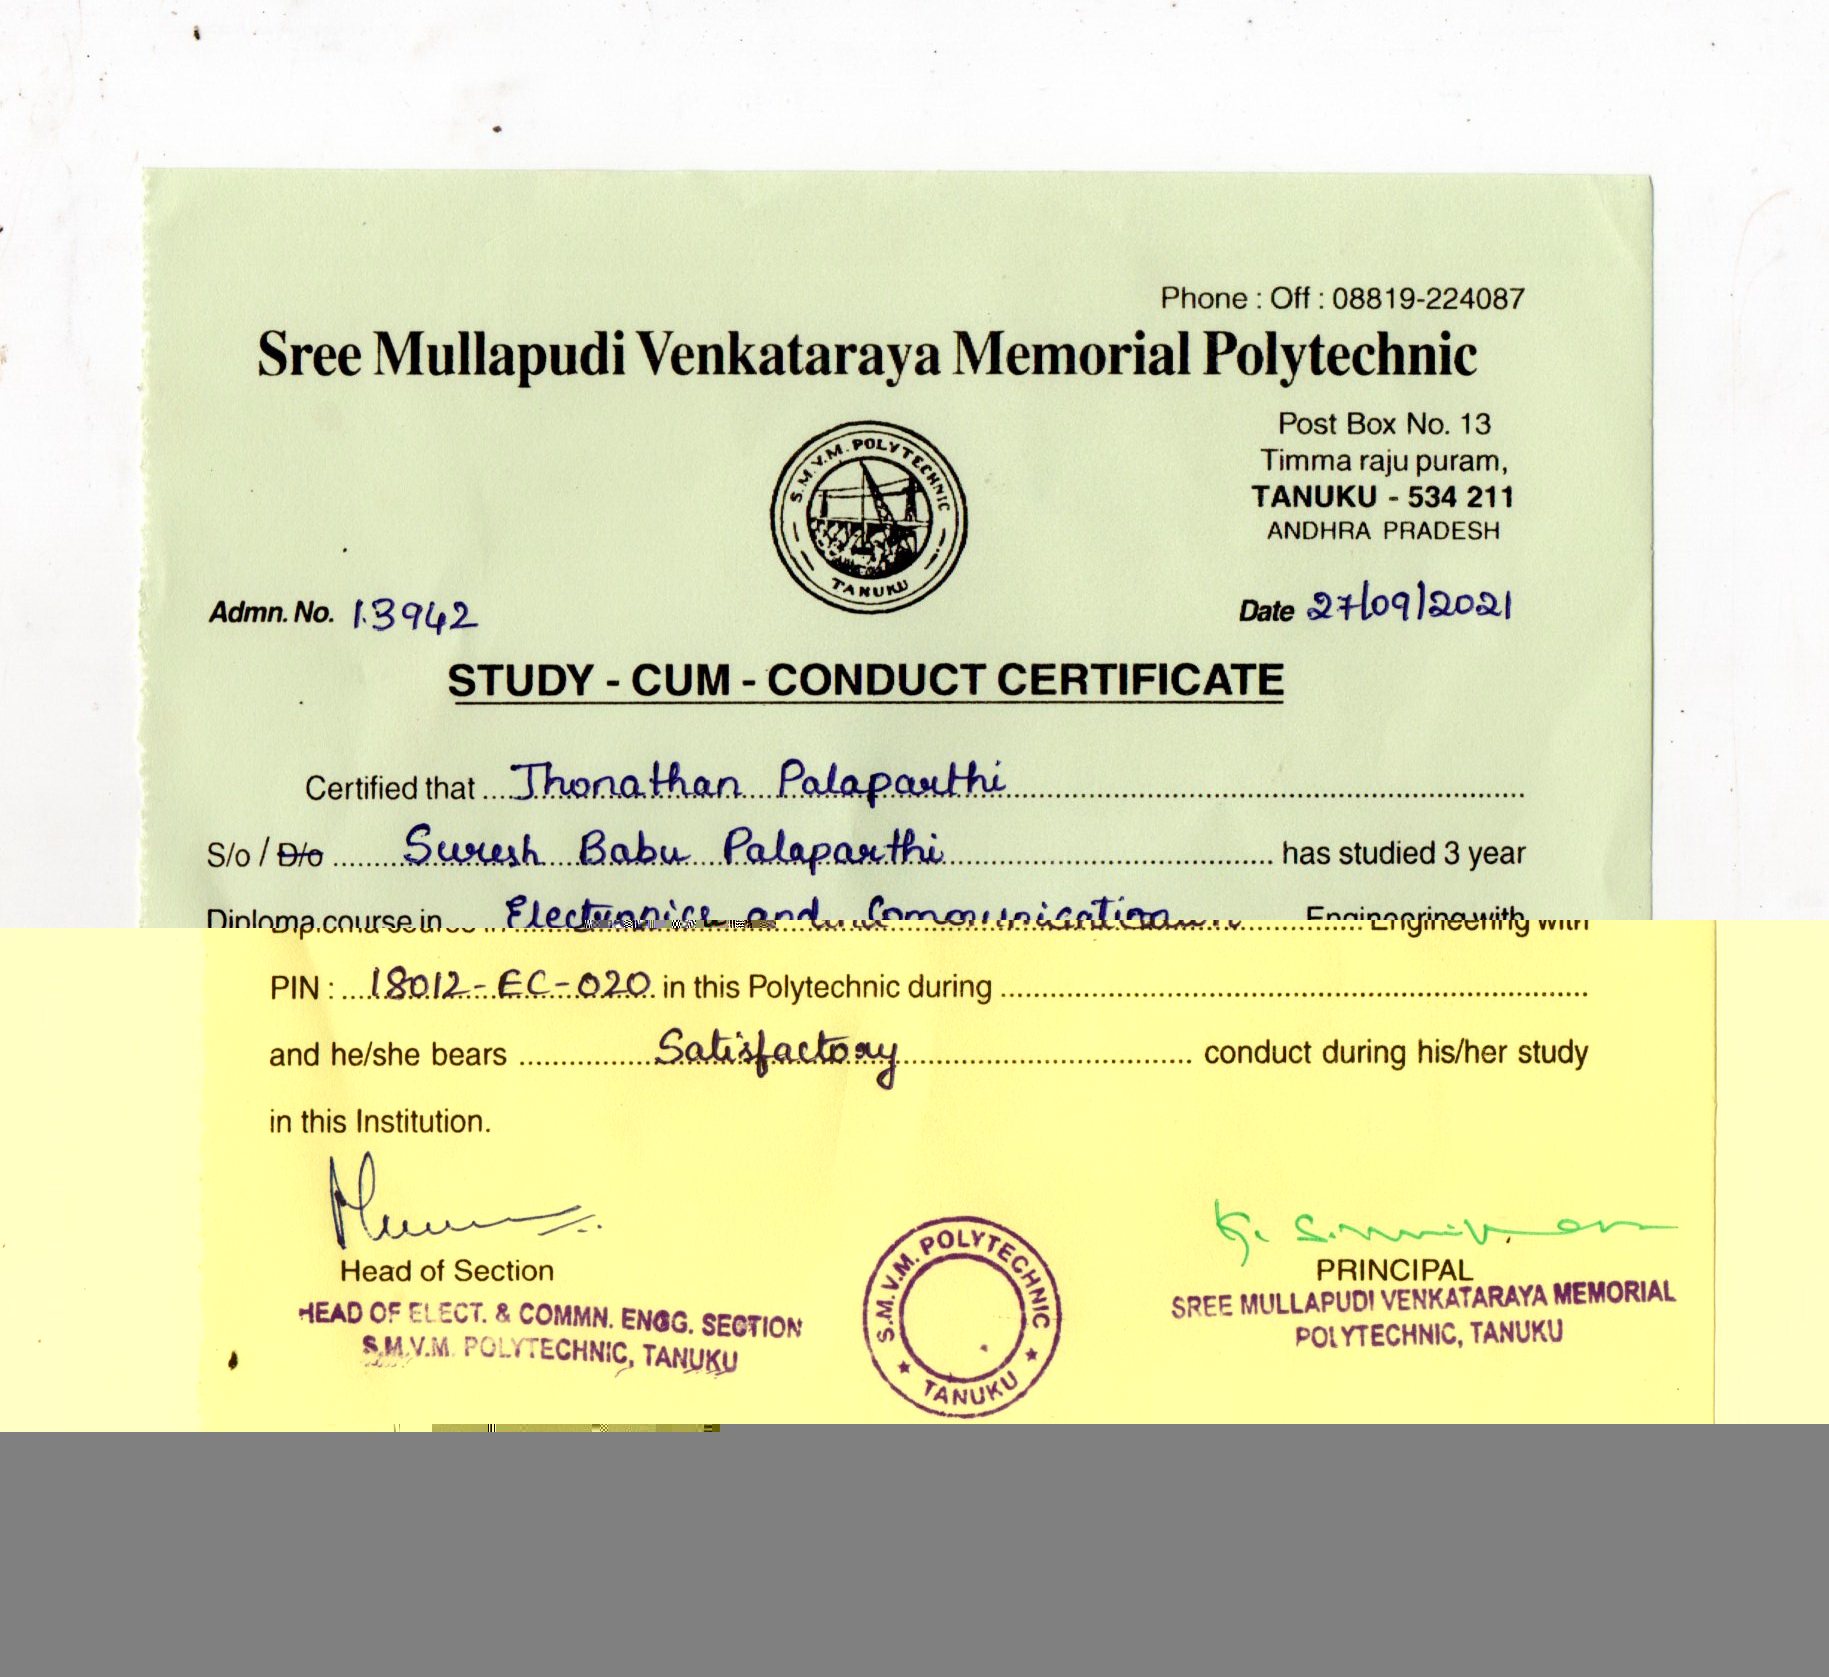 Phone : Off : 08819-224087
Sree Mullapudi Venkataraya Memorial Polytechnic
S.M.V.M. POLYTECHNIC
TANUKU
Post Box No. 13
Timma raju puram,
TANUKU - 534 211
ANDHRA PRADESH
Admn. No. 13942
Date 27/09/2021
STUDY - CUM - CONDUCT CERTIFICATE
Certified that Jhonathan Palaparthi
S/o / D/o Suresh Babu Palaparthi has studied 3 year
Diploma course in Electronics and Communication Engineering with
PIN : 18012-EC-020 in this Polytechnic during
and he/she bears Satisfactory conduct during his/her study
in this Institution.
Head of Section
HEAD OF ELECT. & COMMN. ENGG. SECTION
S.M.V.M. POLYTECHNIC, TANUKU
S.M.V.M. POLYTECHNIC
TANUKU
PRINCIPAL
SREE MULLAPUDI VENKATARAYA MEMORIAL
POLYTECHNIC, TANUKU